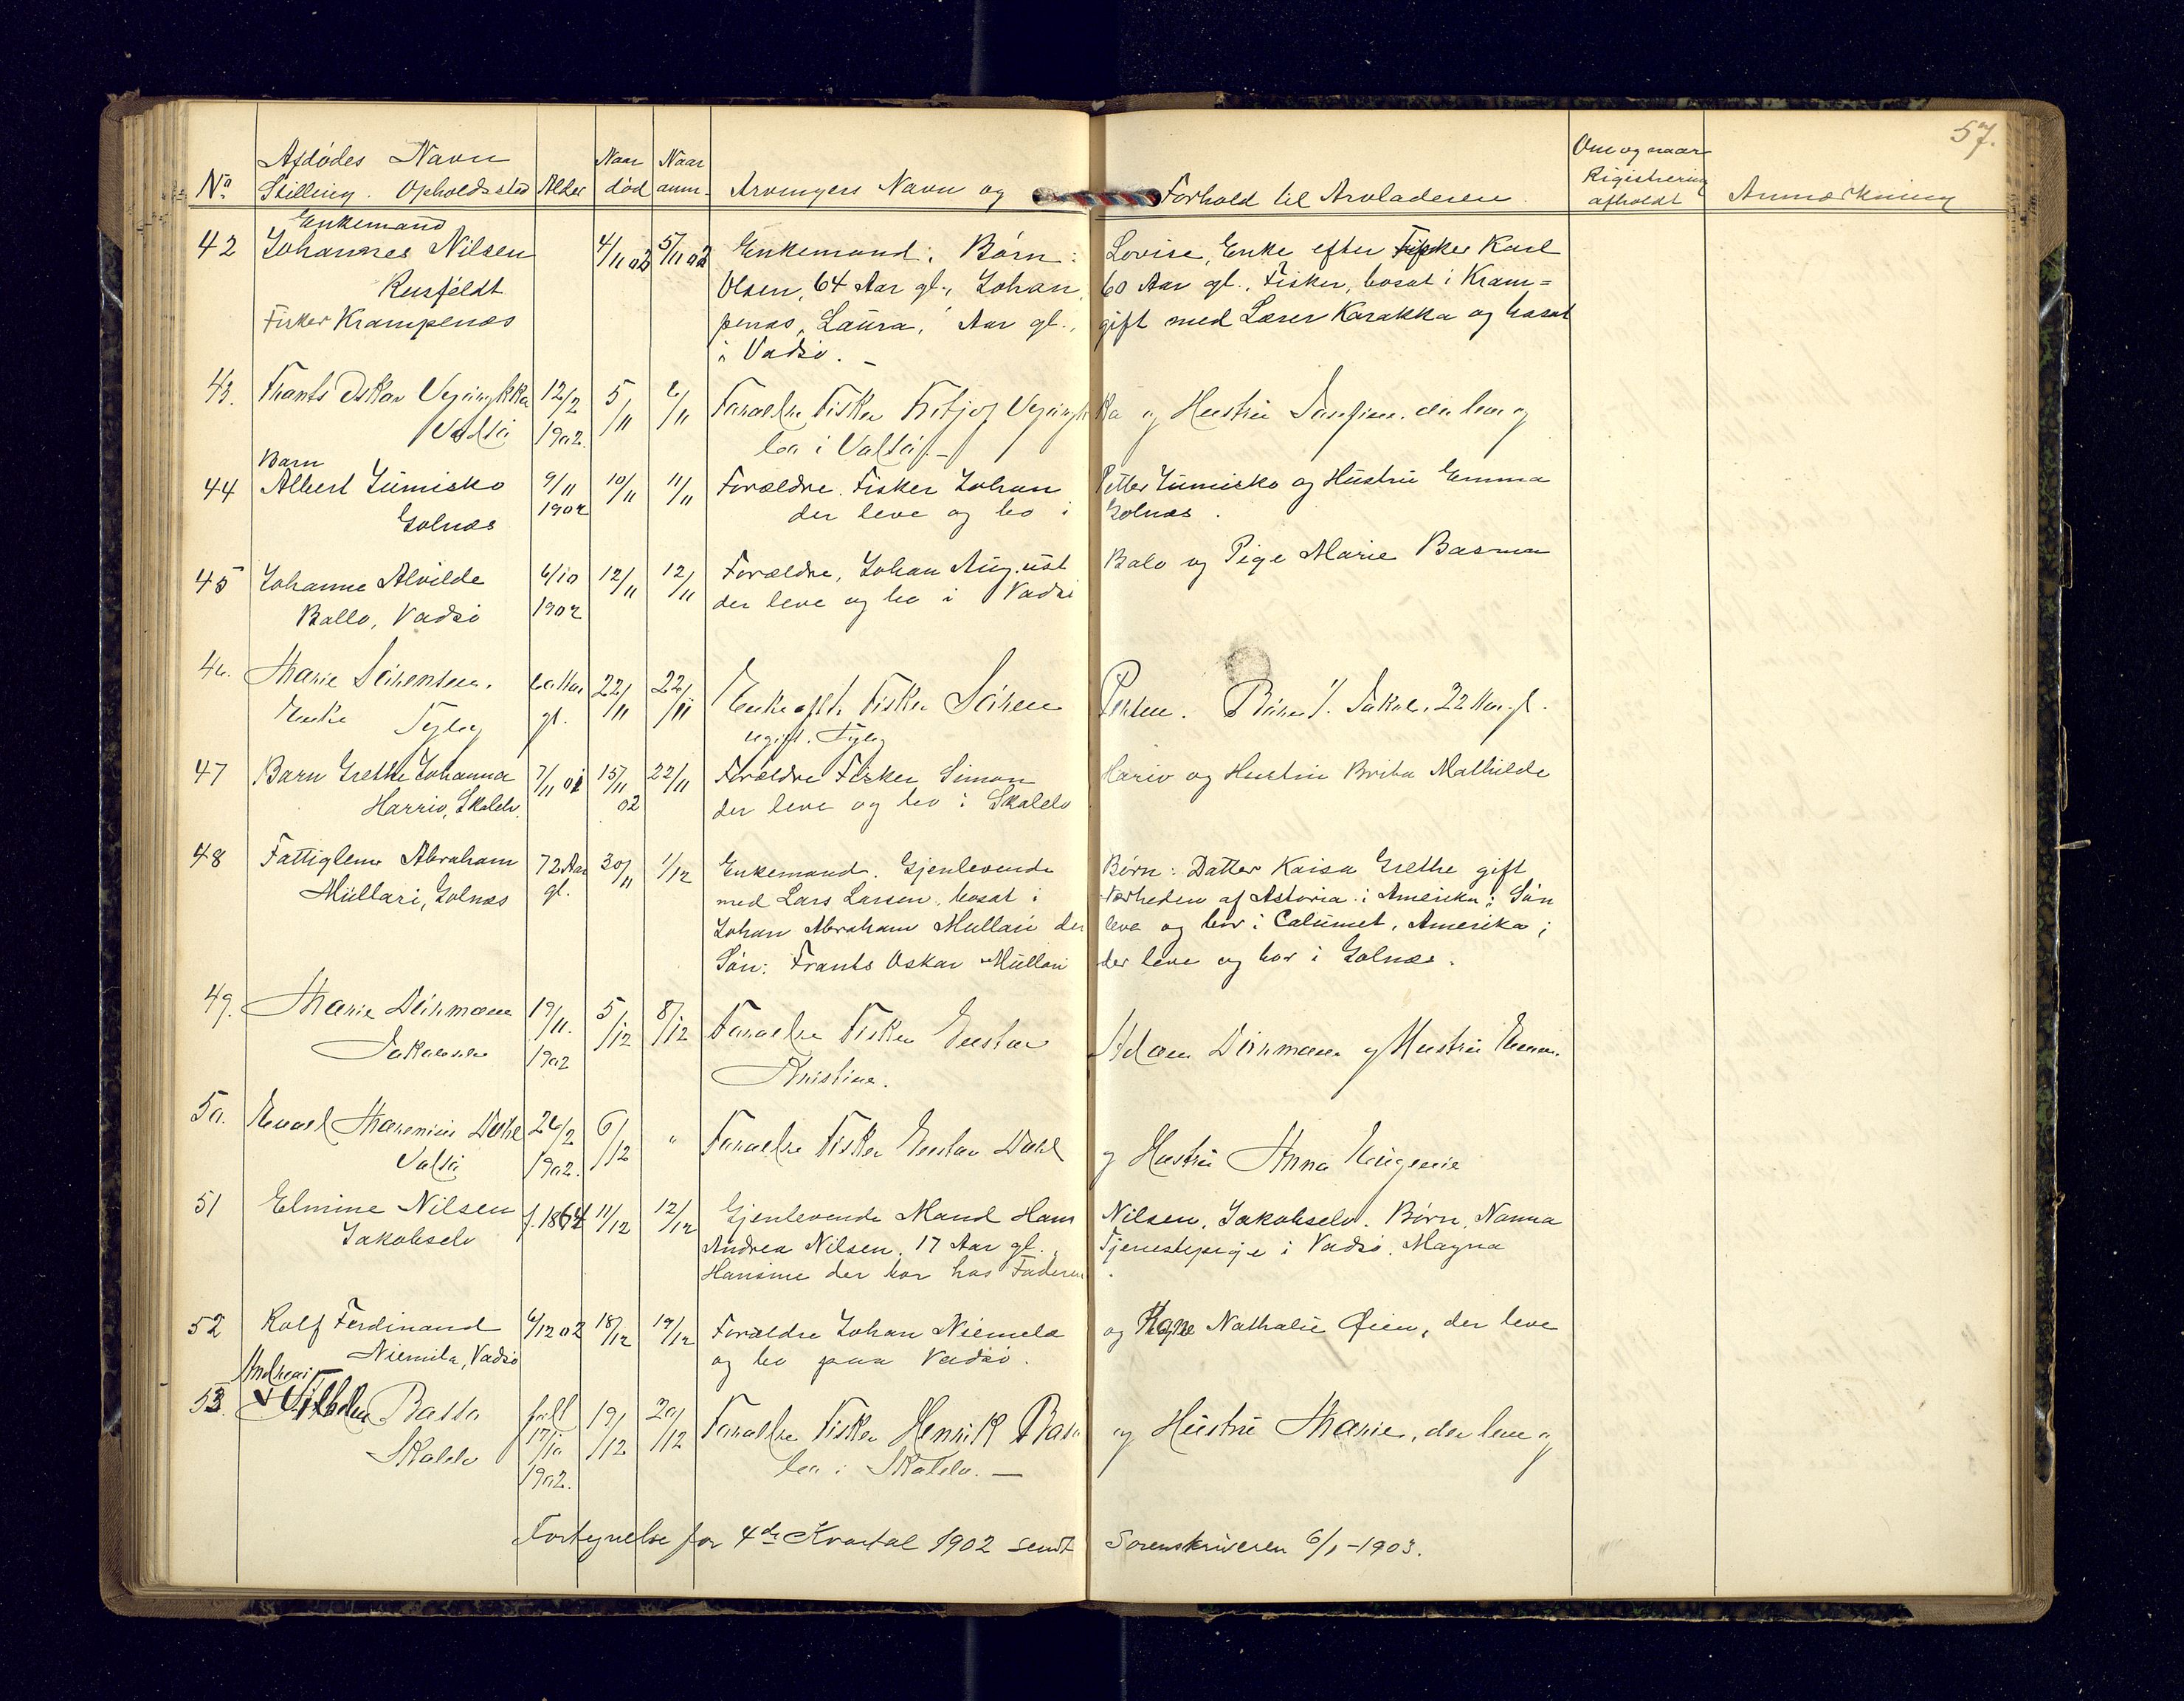 57.
No. Afdødes Navn Stilling. Opholdssted Alder Naar død Naar anm. Arvingers Navn og Forhold til Arvladeren. Om og naar Registrering afholdt Anmærkning
Enkemand
42 Johannes Nilsen 4/11 02 5/11 02 Enkemand; Børn: Lovise, Enke efter Fisker Karl
Rusfeldt Olsen, 64 Aar gl., Johan, 60 Aar gl., Fisker, bosat i Kram=
Fisker Krampenæs penæs, Laura, Aar gl., gift med Lærer Karakka og bosat
i Vadsø. —
43. Frants Oskar 12/2 5/11 6/11 Forældre Fisker og Hustru der leve og
Vadsø 1902. bo i Vadsø. —
Barn
44 Albert Jumisko 9/11 10/11 11/11 Forældre. Fisker Johan Petter Jumisko og Hustru Emma
Golnæs 1902 der leve og bo i Golnæs.
45 Johanne Alvilde 6/10 12/11 12/11 Forældre, Johan August Balo og Pige Marie Basma
Ballo, Vadsø 1902 der leve og bo i Vadsø
46. Marie Sørensen. 60 Aar 22/11 22/11 Enke eft. Fisker Søren Børn 1/. Jakob, 22 Aar gl.
Enke gl. ugift.
47 Barn Grethe Johanna 7/11 01 15/11 22/11 Forældre Fisker Simon Hariv og Hustru Brita Mathilde
Harriv, Skalelv. 02 der leve og bo i Skalelv
48 Fattiglem Abraham 72 Aar 30/11 1/12 Enkemand. Gjenlevende Børn: Datter Kaisa Grethe gift
Mullari, Golnæs gl. med Lars Larsen, bosat i Nærheden af Astoria i Amerika; Søn
Johan Abraham Mullari der leve og bor i Calumet, Amerika;
Søn: Frants Oskar Mullari der leve og bor i Golnæs.
49. Marie 19/11. 5/12 8/12 Forældre Fisker Gustav Adam og Hustru
Jakobselv 1902 Kristine.
50. Marenius Dahl 26/2 6/12 " Forældre Fisker Gustav Dahl og Hustru Anna Eugenie
Vadsø 1902.
51 Elmine Nilsen f. 1864 11/12 12/12 Gjenlevende Mand Hans Nilsen, Jakobselv. Børn, Nanna
Jakobselv Andrea Nilsen, 17 Aar gl., Tjenestepige i Vadsø. Magna
Hansine der bor hos Faderen.
52 Rolf Ferdinand 6/12 02 18/12 19/12 Forældre Johan Niemela og Nathalie Øien, der leve
Niemila, Vadsø og bo paa Vadsø.
Andreas
53. Vilhelm Basso født 19/12 20/12 Forældre Fisker Henrik og Hustru Marie, der leve og
Skalelv 17/10 bo i Skalelv. —
1902.
Fortegnelse for 4de Kvartal 1902 sendt Sorenskriveren 6/1-1903.